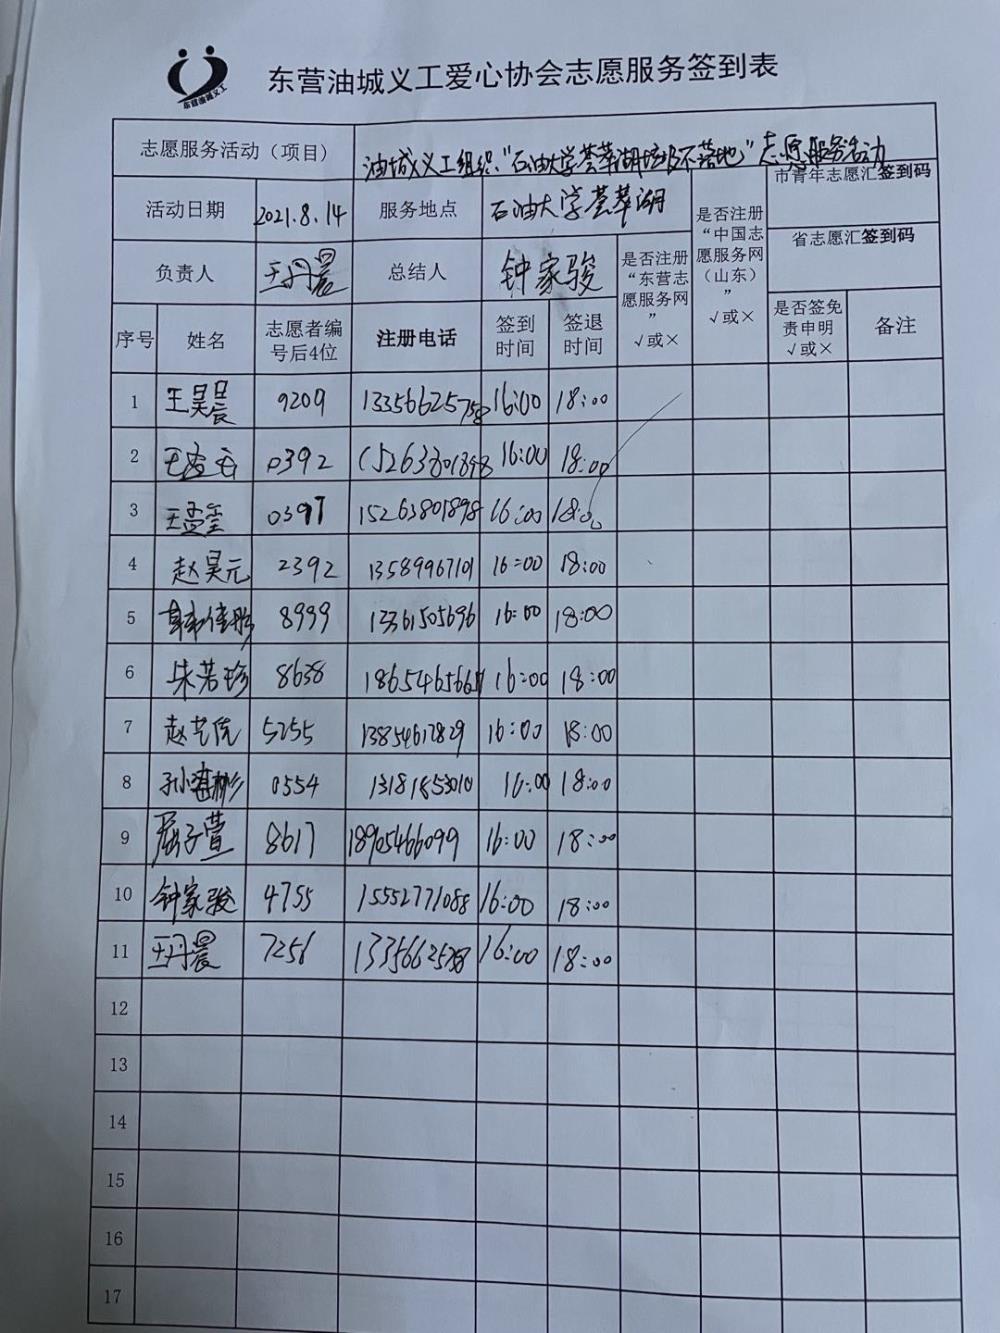 东营油城义工
东营油城义工爱心协会志愿服务签到表
志愿服务活动（项目） 油城义工组织“石油大学荟萃湖垃圾不落地”志愿服务活动
活动日期 2021.8.14 服务地点 石油大学荟萃湖 是否注册“中国志愿服务网（山东）” √或× 市青年志愿汇签到码
负责人 王丹晨 总结人 钟家骏 是否注册“东营志愿服务网” √或× 省志愿汇签到码
序号 姓名 志愿者编号后4位 注册电话 签到时间 签退时间 是否签免责申明 √或× 备注
1 王昊晨 9209 13356625758 16:00 18:00
2 0392 15263801898 16:00 18:00
3 王孟玺 0397 15263801898 16:00 18:00
4 赵昊元 2392 13589967101 16:00 18:00
5 韩佳彤 8999 13361505696 16:00 18:00
6 朱若珍 8638 16:00 18:00
7 赵艺侊 5255 13854612829 16:00 18:00
8 0554 13181853010 16:00 18:00
9 屈子萱 8617 18905466099 16:00 18:00
10 钟家骏 4755 15552771088 16:00 18:00
11 王丹晨 7256 13356625758 16:00 18:00
12
13
14
15
16
17